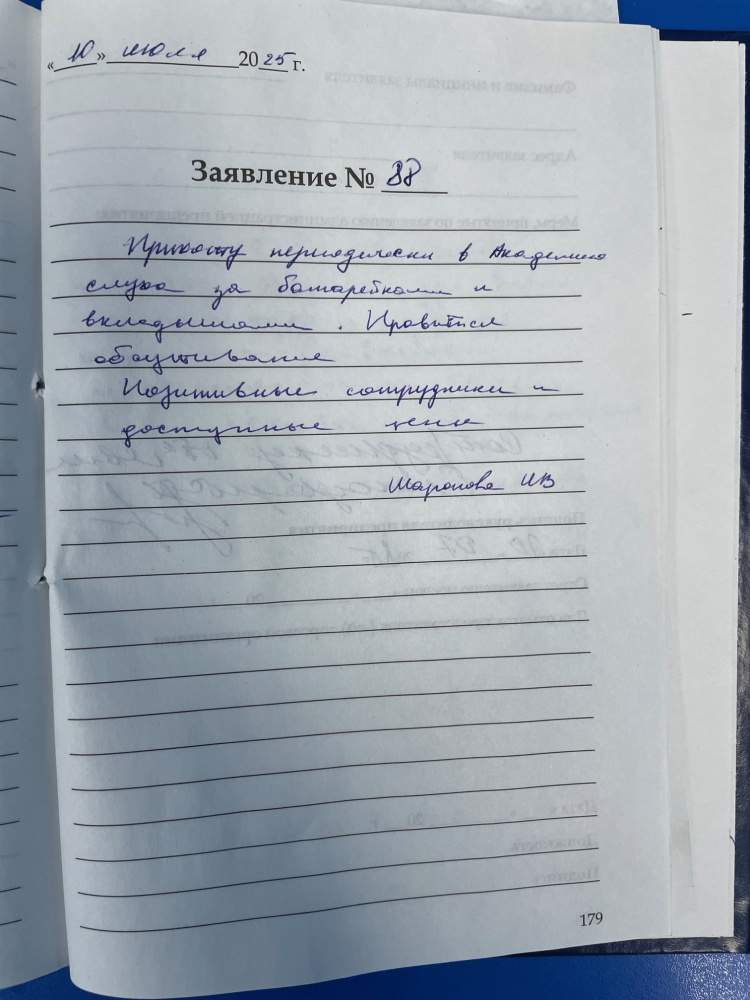 «10» июля 2025 г.
Заявление № 88
Прихожу периодически в Академию
слуха за батарейками и
вкладышами. Нравится
обслуживание
Позитивные сотрудники и
доступные цены
Шаронова ИВ
179